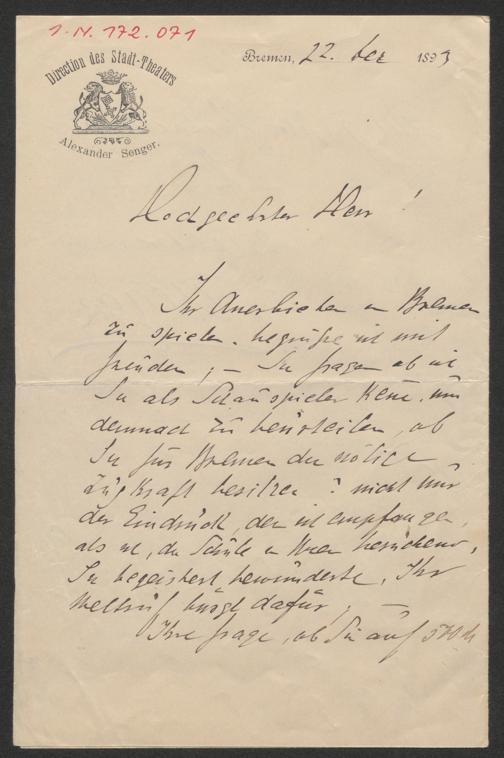 I.N. 172.071
Direction des Stadt-Theaters
Alexander Senger.
Bremen, 22. Dez 1893
Hochgeehrter Herr!
Ihr Anerbieten in Bremen
zu spielen, begrüße ich mit
Freuden; — Sie fragen ob ich
Sie als Schauspieler kenne, um
demnach zu beurteilen, ob
Sie für Bremen die nötige
Zugkraft besitzen? nicht nur
der Eindruck, den ich empfangen,
als ich, die Schule in Wien besuchend,
Sie begeistert bewunderte, Ihr
Weltruf bürgt dafür, —
Ihre Frage, ob Sie auf